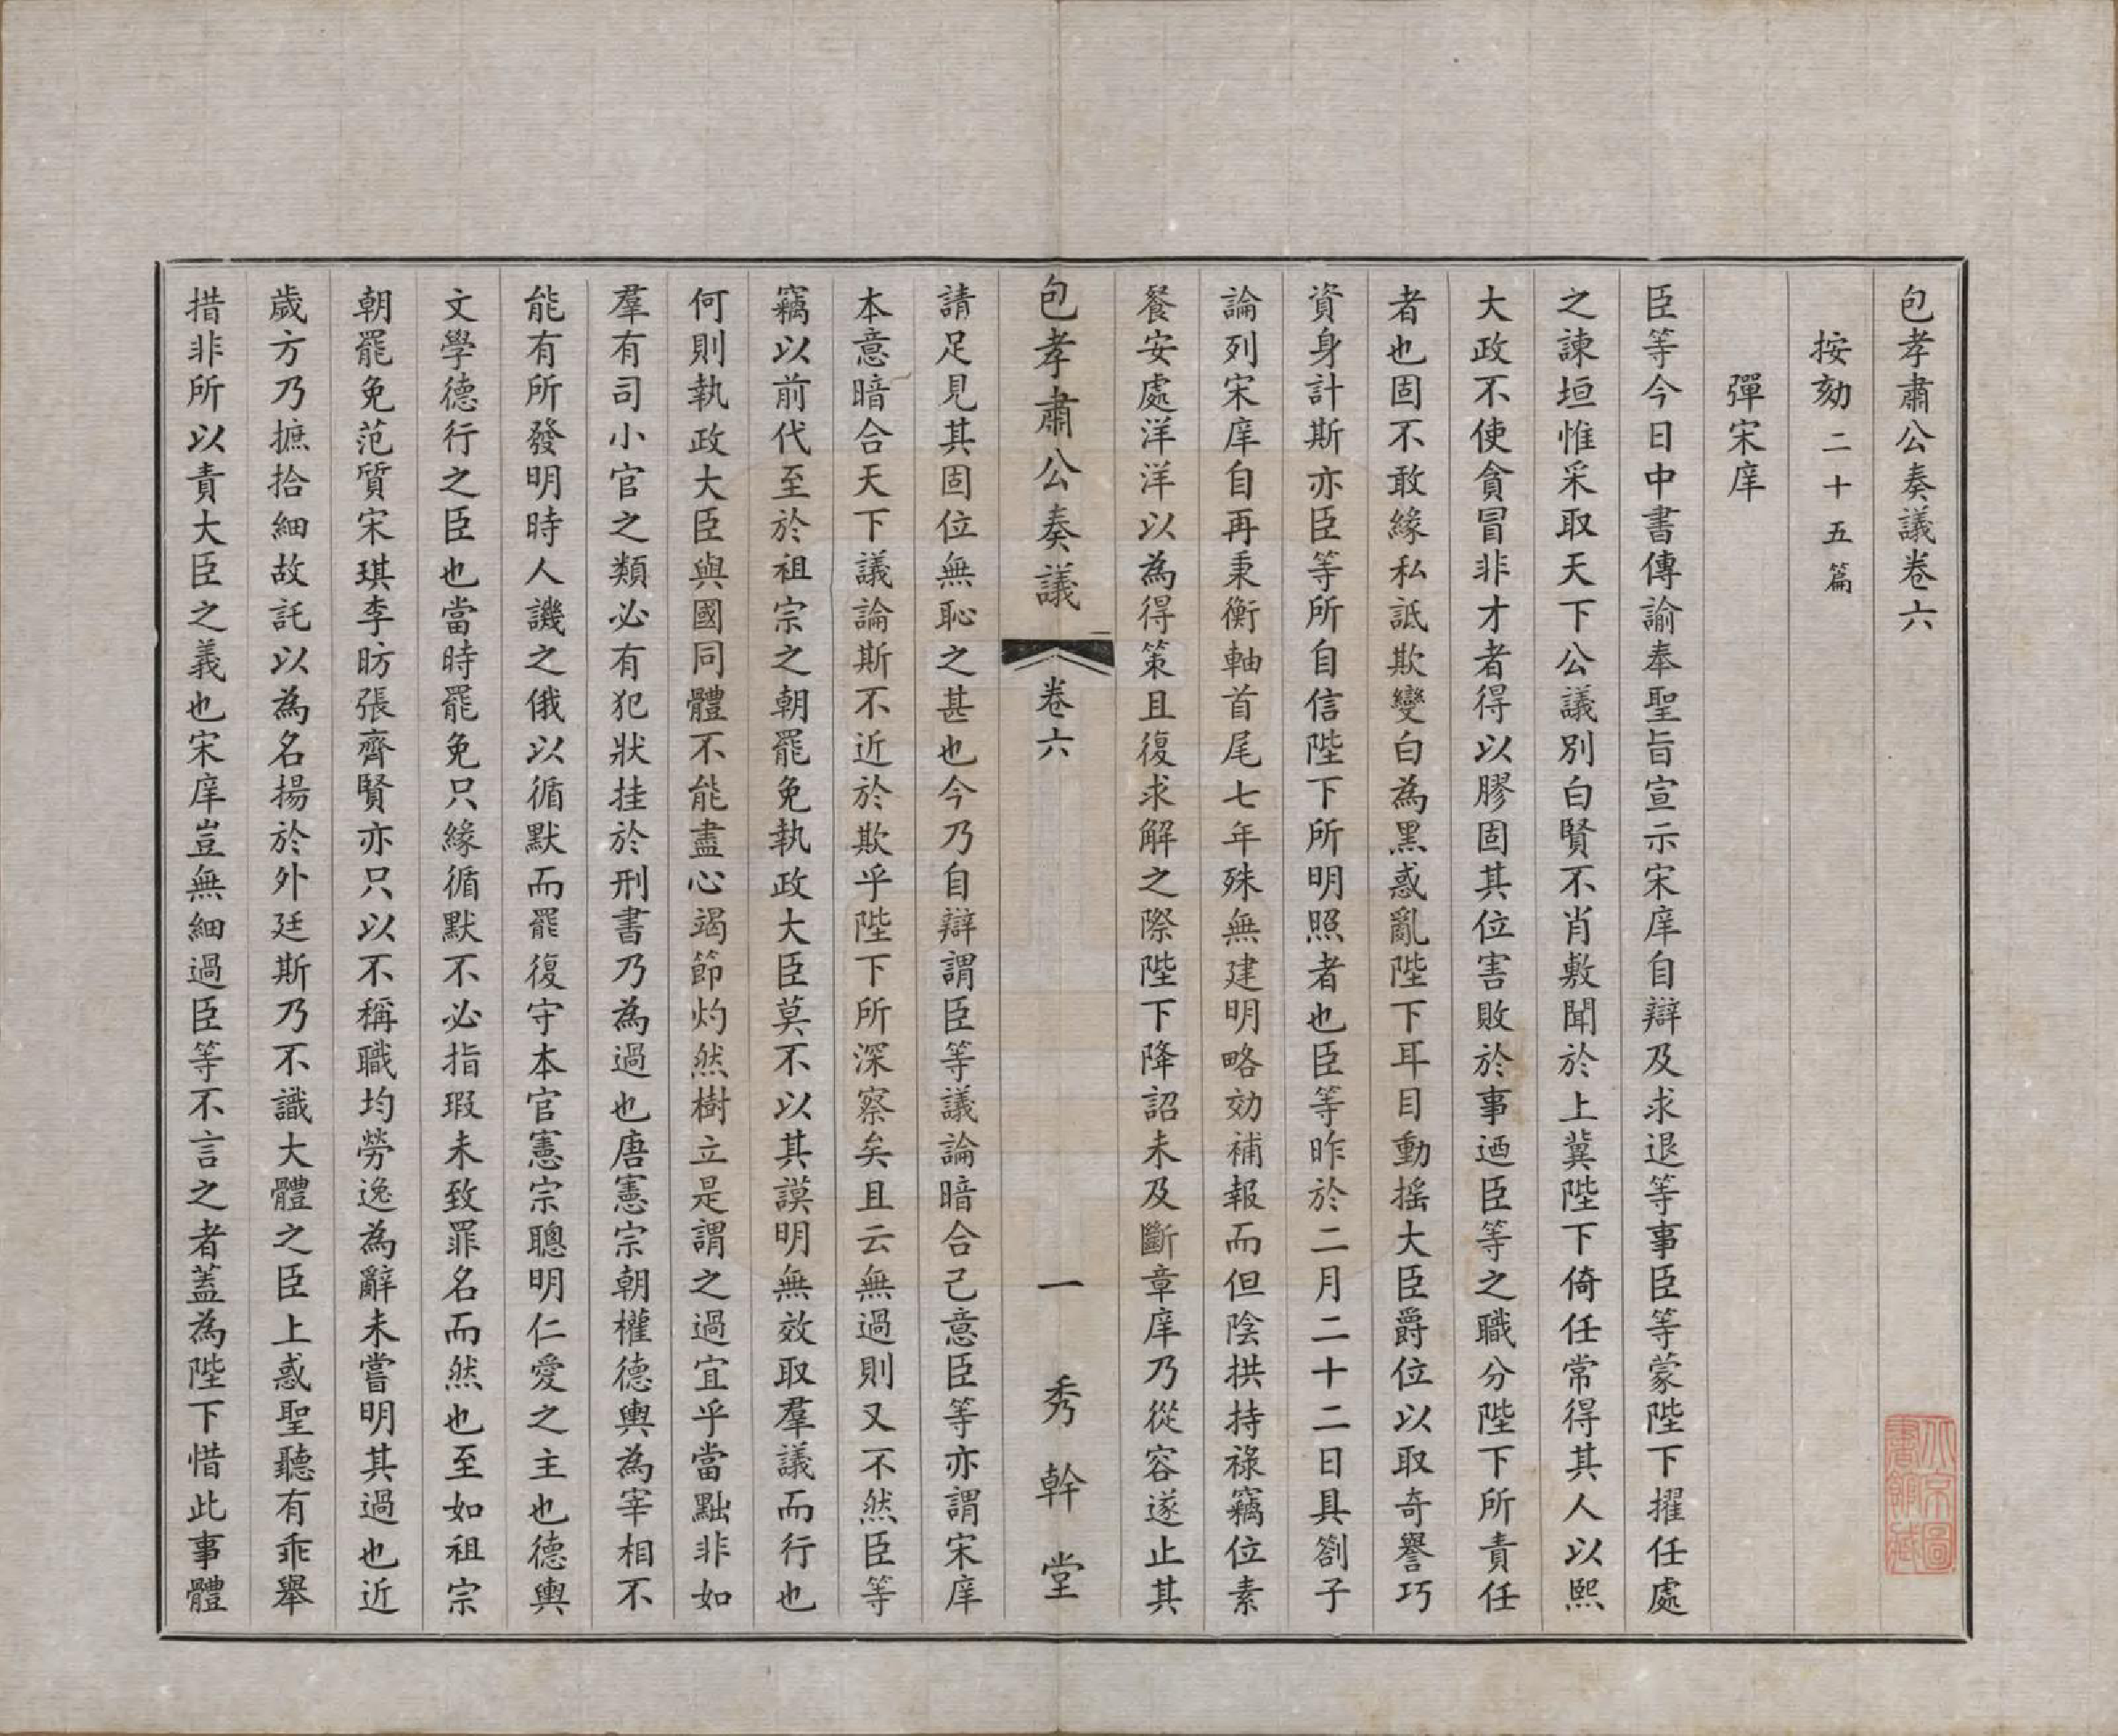 包孝肅公奏議卷六
按劾二十五篇
彈宋庠
臣等今日中書傳諭奉聖旨宣示宋庠自辯及求退等事臣等蒙陛下擢任處
之諫垣惟采取天下公議別白賢不肖敷聞於上冀陛下倚任常得其人以熙
大政不使貪冒非才者得以膠固其位害敗於事迺臣等之職分陛下所責任
者也固不敢緣私詆欺變白為黑惑亂陛下耳目動搖大臣爵位以取奇譽巧
資身計斯亦臣等所自信陛下所明照者也臣等昨於二月二十二日具劄子
論列宋庠自再秉衡軸首尾七年殊無建明略効補報而但陰拱持祿竊位素
餐安處洋洋以為得策且復求解之際陛下降詔未及斷章庠乃從容遂止其
包孝肅公奏議
卷六
一
秀幹堂
請足見其固位無恥之甚也今乃自辯謂臣等議論暗合己意臣等亦謂宋庠
本意暗合天下議論斯不近於欺乎陛下所深察矣且云無過則又不然臣等
竊以前代至於祖宗之朝罷免執政大臣莫不以其謨明無效取羣議而行也
何則執政大臣與國同體不能盡心竭節灼然樹立是謂之過宜乎當黜非如
羣有司小官之類必有犯狀挂於刑書乃為過也唐憲宗朝權德輿為宰相不
能有所發明時人譏之俄以循默而罷復守本官憲宗聰明仁愛之主也德輿
文學德行之臣也當時罷免只緣循默不必指瑕未致罪名而然也至如祖宗
朝罷免范質宋琪李昉張齊賢亦只以不稱職均勞逸為辭未嘗明其過也近
歲方乃摭拾細故託以為名揚於外廷斯乃不識大體之臣上惑聖聽有乖舉
措非所以責大臣之義也宋庠豈無細過臣等不言之者蓋為陛下惜此事體
京師圖書館藏